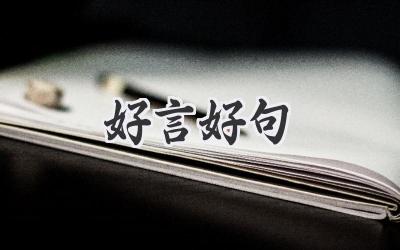 好言好句